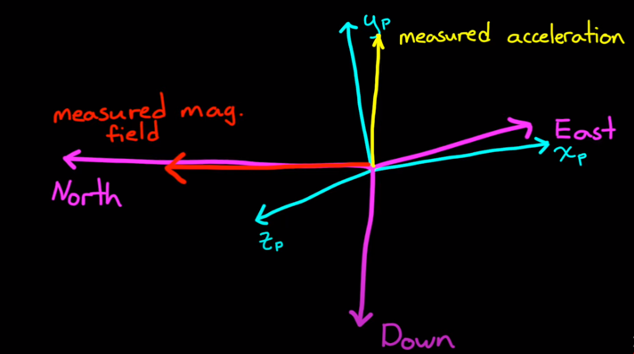 yₚ
measured acceleration
measured mag.
field
East
xₚ
North
zₚ
Down